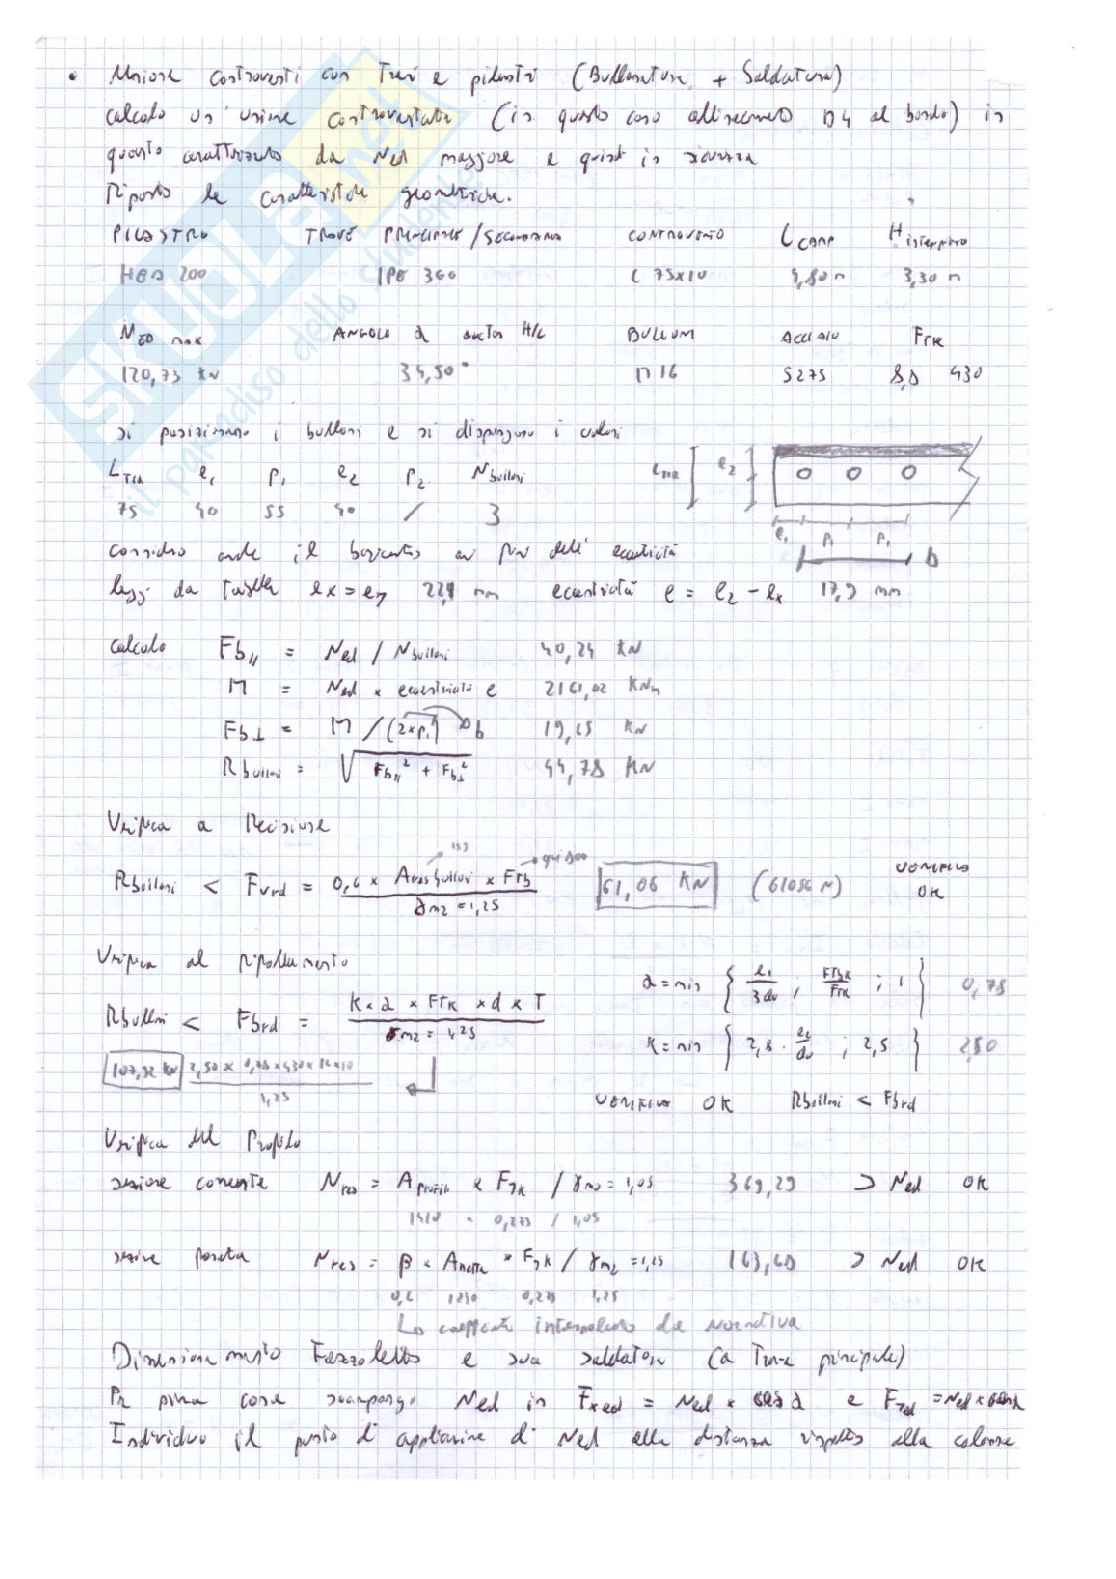 • Unione controventi con travi e pilastri (Bullonatura + Saldatura)
calcolo un'unione controventata (in questo caso allineamento D4 al bordo) in
quanto caratterizzato da Ned maggiore e quindi in sicurezza
Riporto le caratteristiche geometriche.
PILASTRO TRAVE PRINCIPALE/SECONDARIA CONTROVENTO LCAMP Hinterpiano
HEA 200 IPE 360 L 75x10 4,80 m 3,30 m
NED max ANGOLO α arctan H/L BULLONI ACCIAIO FTK
120,73 KN 34,50° M16 S275 8,8 430
si posizionano i bulloni e si dispongono i valori
e1 p1 e2 p2 Nbulloni
75 40 55 40 / 3
e2
e1 p1 p1 b
considero anche il baricentro ai fini dell'eccentricità
leggi da tabella ex = ey 22,1 mm eccentricità e = e2 - ex 17,9 mm
calcolo Fb// = Ned / Nbulloni 40,24 KN
M = Ned x eccentricità e 2161,02 KNm
Fb⊥ = M / (2xp1) b 19,65 KN
Rbulloni = √ Fb//² + Fb⊥² 44,78 KN
Verifica a Recisione
Rbulloni < Fvrd = 0,6 x Ares bulloni x Ftb / γm2 = 1,25 61,06 KN (61056 N) VERIFICA OK
Verifica al Rifollamento
α = min { e1/3do ; FTBK/FTK ; 1 } 0,78
Rbulloni < Fbrd = K x α x FTK x d x T / γm2 = 1,25
K = min { 2,8 · e2/do ; 2,5 } 2,50
107,32 KN 2,50 x 0,78 x 430 x 16 x 10 / 1,25
VERIFICA OK Rbulloni < Fbrd
Verifica del Profilo
sezione corrente Nres = Aprofilo x Fyk / γmo = 1,05 369,29 > Ned OK
1410 · 0,275 / 1,05
sezione forata Nres = β x Anetta x Fyk / γm2 = 1,25 163,68 > Ned OK
0,6 1240 0,275 1,25
Lo coefficiente da Normativa
Dimensionamento Fazzoletto e sua saldatura (a Trave principale)
Per prima cosa scompongo Ned in Fxed = Ned x cosα e Fyed = Ned x senα
Individuo il punto di applicazione di Ned alla distanza rispetto alla colonna